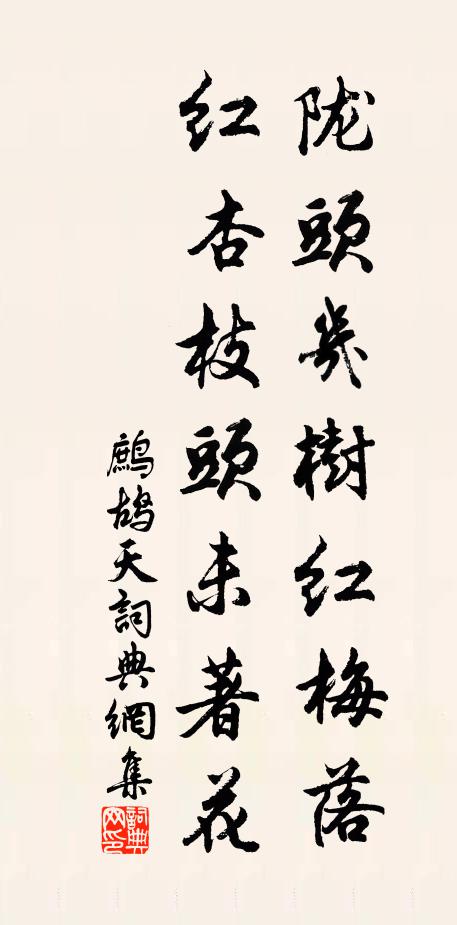 陇頭幾樹红梅落
红杏枝頭未著花
鷓鴣天詞典網集
詞典网印